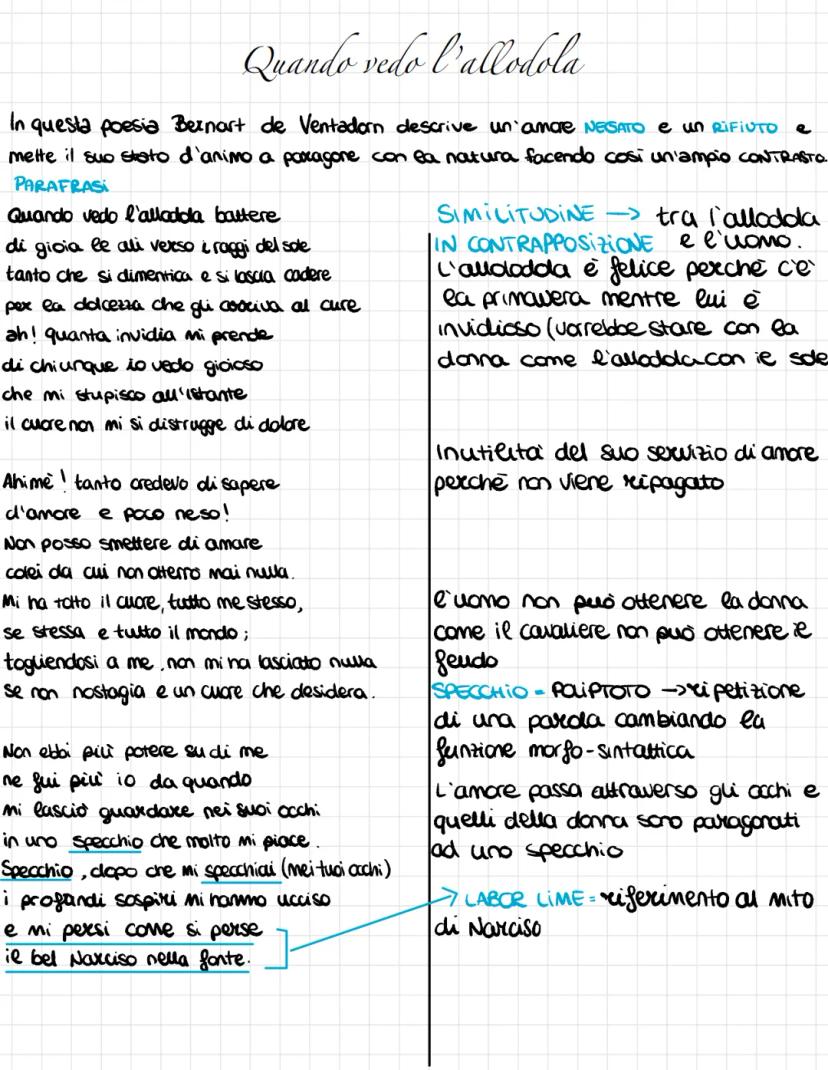 Quando vedo l'allodola
In questa poesia Bernart de Ventadorn descrive un'amore NEGATO e un RIFIUTO e
mette il suo stato d'animo a paragone con la natura facendo così un'ampio CONTRASTO.
PARAFRASI
Quando vedo l'allodola battere
di gioia le ali verso i raggi del sole
tanto che si dimentica e si lascia cadere
per la dolcezza che gli arriva al cure
ah! quanta invidia mi prende
di chiunque io vedo gioioso
che mi stupisco all'istante
il cuore non mi si distrugge di dolore
Ahimè! tanto credevo di sapere
d'amore e poco ne so!
Non posso smettere di amare
colei da cui non otterrò mai nulla.
Mi ha tolto il cuore, tutto me stesso,
se stessa e tutto il mondo;
togliendosi a me, non mi ha lasciato nulla
se non nostagia e un cuore che desidera.
Non ebbi più potere su di me
ne fui più io da quando
mi lasciò guardare nei suoi occhi
in uno specchio che molto mi piace.
Specchio, dopo che mi specchiai (nei tuoi occhi)
i profondi sospiri mi hanno ucciso
e mi persi come si perse
il bel Narciso nella fonte.
SIMILITUDINE → tra l'allodola
IN CONTRAPPOSIZIONE e l'uomo.
L'allodola è felice perché c'è
la primavera mentre lui è
invidioso (vorrebbe stare con la
donna come l'allodola con il sole
Inutilità del suo servizio di amore
perché non viene ripagato
l'uomo non può ottenere la donna
come il cavaliere non può ottenere il
feudo
SPECCHIO = POLIPTOTO → ripetizione
di una parola cambiando la
funzione morfo-sintattica
L'amore passa attraverso gli occhi e
quelli della donna sono paragonati
ad uno specchio
LABOR LIME = riferimento al mito
di Narciso